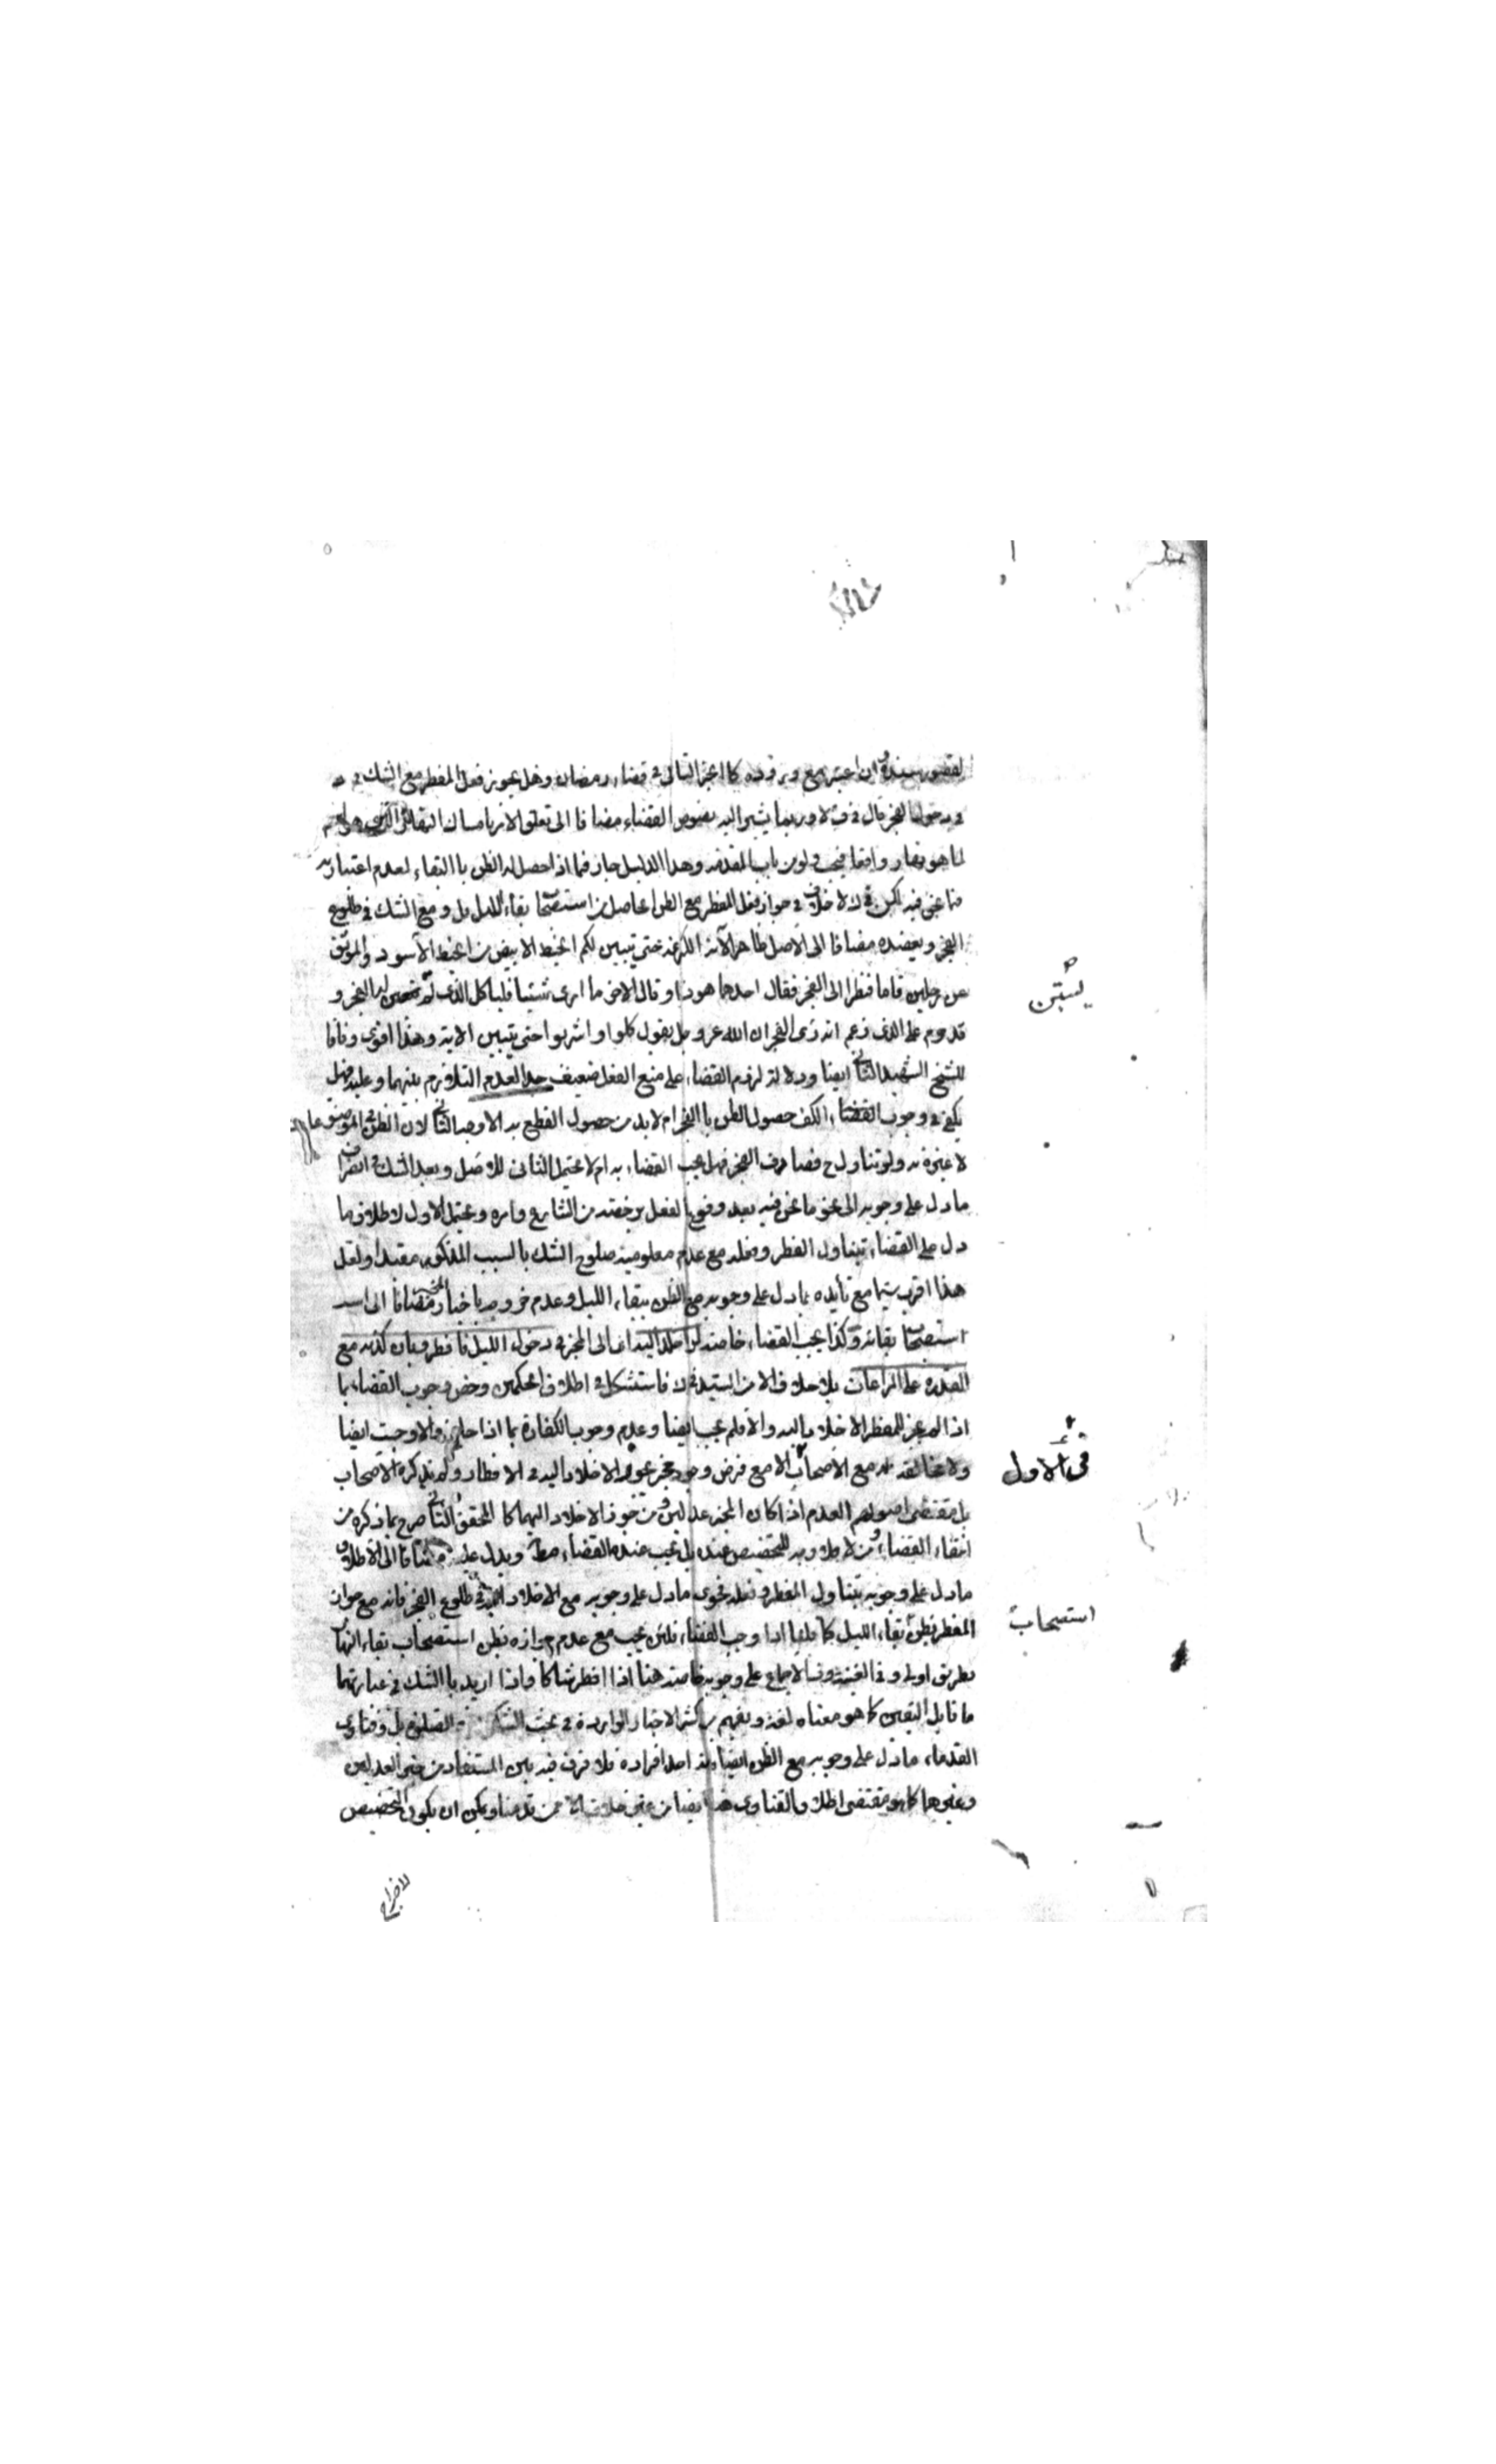 لقصور سنده ان اعتبر مع وروده كالخبر التالى فى قضاء رمضان وهل يجوز فعل المفطر مع الشك فى
دخول الفجر قال فى لا وربما يشير اليه نصوص القضاء مضافا الى تعلق الامر بامساك النهار
لما هو نهار واقعا فيجب ولو من باب المقدمه وهذا الدليل جار فيما اذا حصل له الظن باالبقاء لعدم اعتباره
فيما نحن فيه لكن لا خلاف فى جواز فعل المفطر مع الظن الحاصل من استصحاب بقاء الليل بل ومع الشك فى طلوع
الفجر ويعضده مضافا الى الاصل ظاهر الآية الكريمة حتى يتبين لكم الخيط الابيض من الخيط الاسود والموثق
عن رجلين قاما فنظرا الى الفجر فقال احدهما هوذا وقال الاخر ما ارى شيئا فلياكل الذى لم يتبين له الفجر و
قد حرم على الذى زعم انه راى الفجر ان الله عز وجل يقول كلوا واشربوا حتى يتبين الاية وهذا اقوى وفاقا
للشيخ الشهيد الثانى ايضا ودلالة لزوم القضاء على منع الفعل ضعيف جدا لعدم التلازم بينهما وعليه فهل
يكفى فى وجوب القضاء الكف حصول الظن باالفجر ام لا بد من حصول القطع به الاوجه الثانى لان الظن فى الموضوع
لا عبرة به ولو تناول ح فصادف الفجر فهل يجب القضاء به ام لا يحتمل الثانى للاصل وبعد الشك فى انصراف
ما دل على وجوبه الى نحو ما نحن فيه بعد وقوع الفعل برخصته من الشارع وامره ويحتمل الاول لاطلاق ما
دل على القضاء بتناول المفطر وفعله مع عدم معلومية صلوح الشك بالسبب المذكور مقيدا ولعل
هذا اقرب سيما مع تأيده بما دل على وجوبه مع الظن ببقاء الليل وعدم خروجه باخبار المخبر مضافا الى
استصحاب بقائه وكذا يجب القضاء خاصة لو اخلد اليه اى الى المخبر فى دخول الليل فافطر وبان كذبه مع
القدرة على المراعات بلا خلاف الا من السيد فى لا فاستشكل فى اطلاق الحكمين وخص وجوب القضاء بما
اذا لم يجز للمفطر الاخلاد اليه والا فلم يجب ايضا وعدم وجوب الكفارة بما اذا والا وجبت ايضا
ولا مخالفة له مع الاصحاب الا مع فرض وجود مخبر يجوز الاخلاد اليه فى الافطار ولم يذكره الاصحاب
بل مقتضى اصولهم العدم اذا كان المخبر عدلين فيجوز الاخلاد اليهما كا المحقق الثانى صرح بما ذكره من
انتفاء القضاء ومن لا فلا وجه للتخصيص عنده بل يجب عنده القضاء مطلقا ويدل عليه مضافا الى الاطلاق
ما دل على وجوبه بتناول المفطر وفعله فحوى ما دل على وجوبه مع الاخلاد اليه فى طلوع الفجر فانه مع جواز
المفطر بظن بقاء الليل كما قلنا اذا وجب القضاء فلئن يجب مع عدم جوازه بظن استصحاب بقاء النهار
بطريق اولى وفى الغنية الاجماع على وجوبه خاصة هنا اذا افطر شاكا واذا اريد باالشك فى عبارتهما
ما قابل اليقين كما هو معناه لغة ويفهم من كثير الاخبار الواردة فى بحث الشكوك فى الصلوة بل وفتاوى
القدماء ما دل على وجوبه مع الظن ايضا لانه احد افراده فلا فرق فيه بين المستفاد من خبر العدلين
وغيرها كما هو مقتضى اطلاق الفتاوى هنا ايضا من غير خلاف الا ممن قدمنا ويمكن ان يكون التخصيص
يستبن
فى الاول
استصحاب